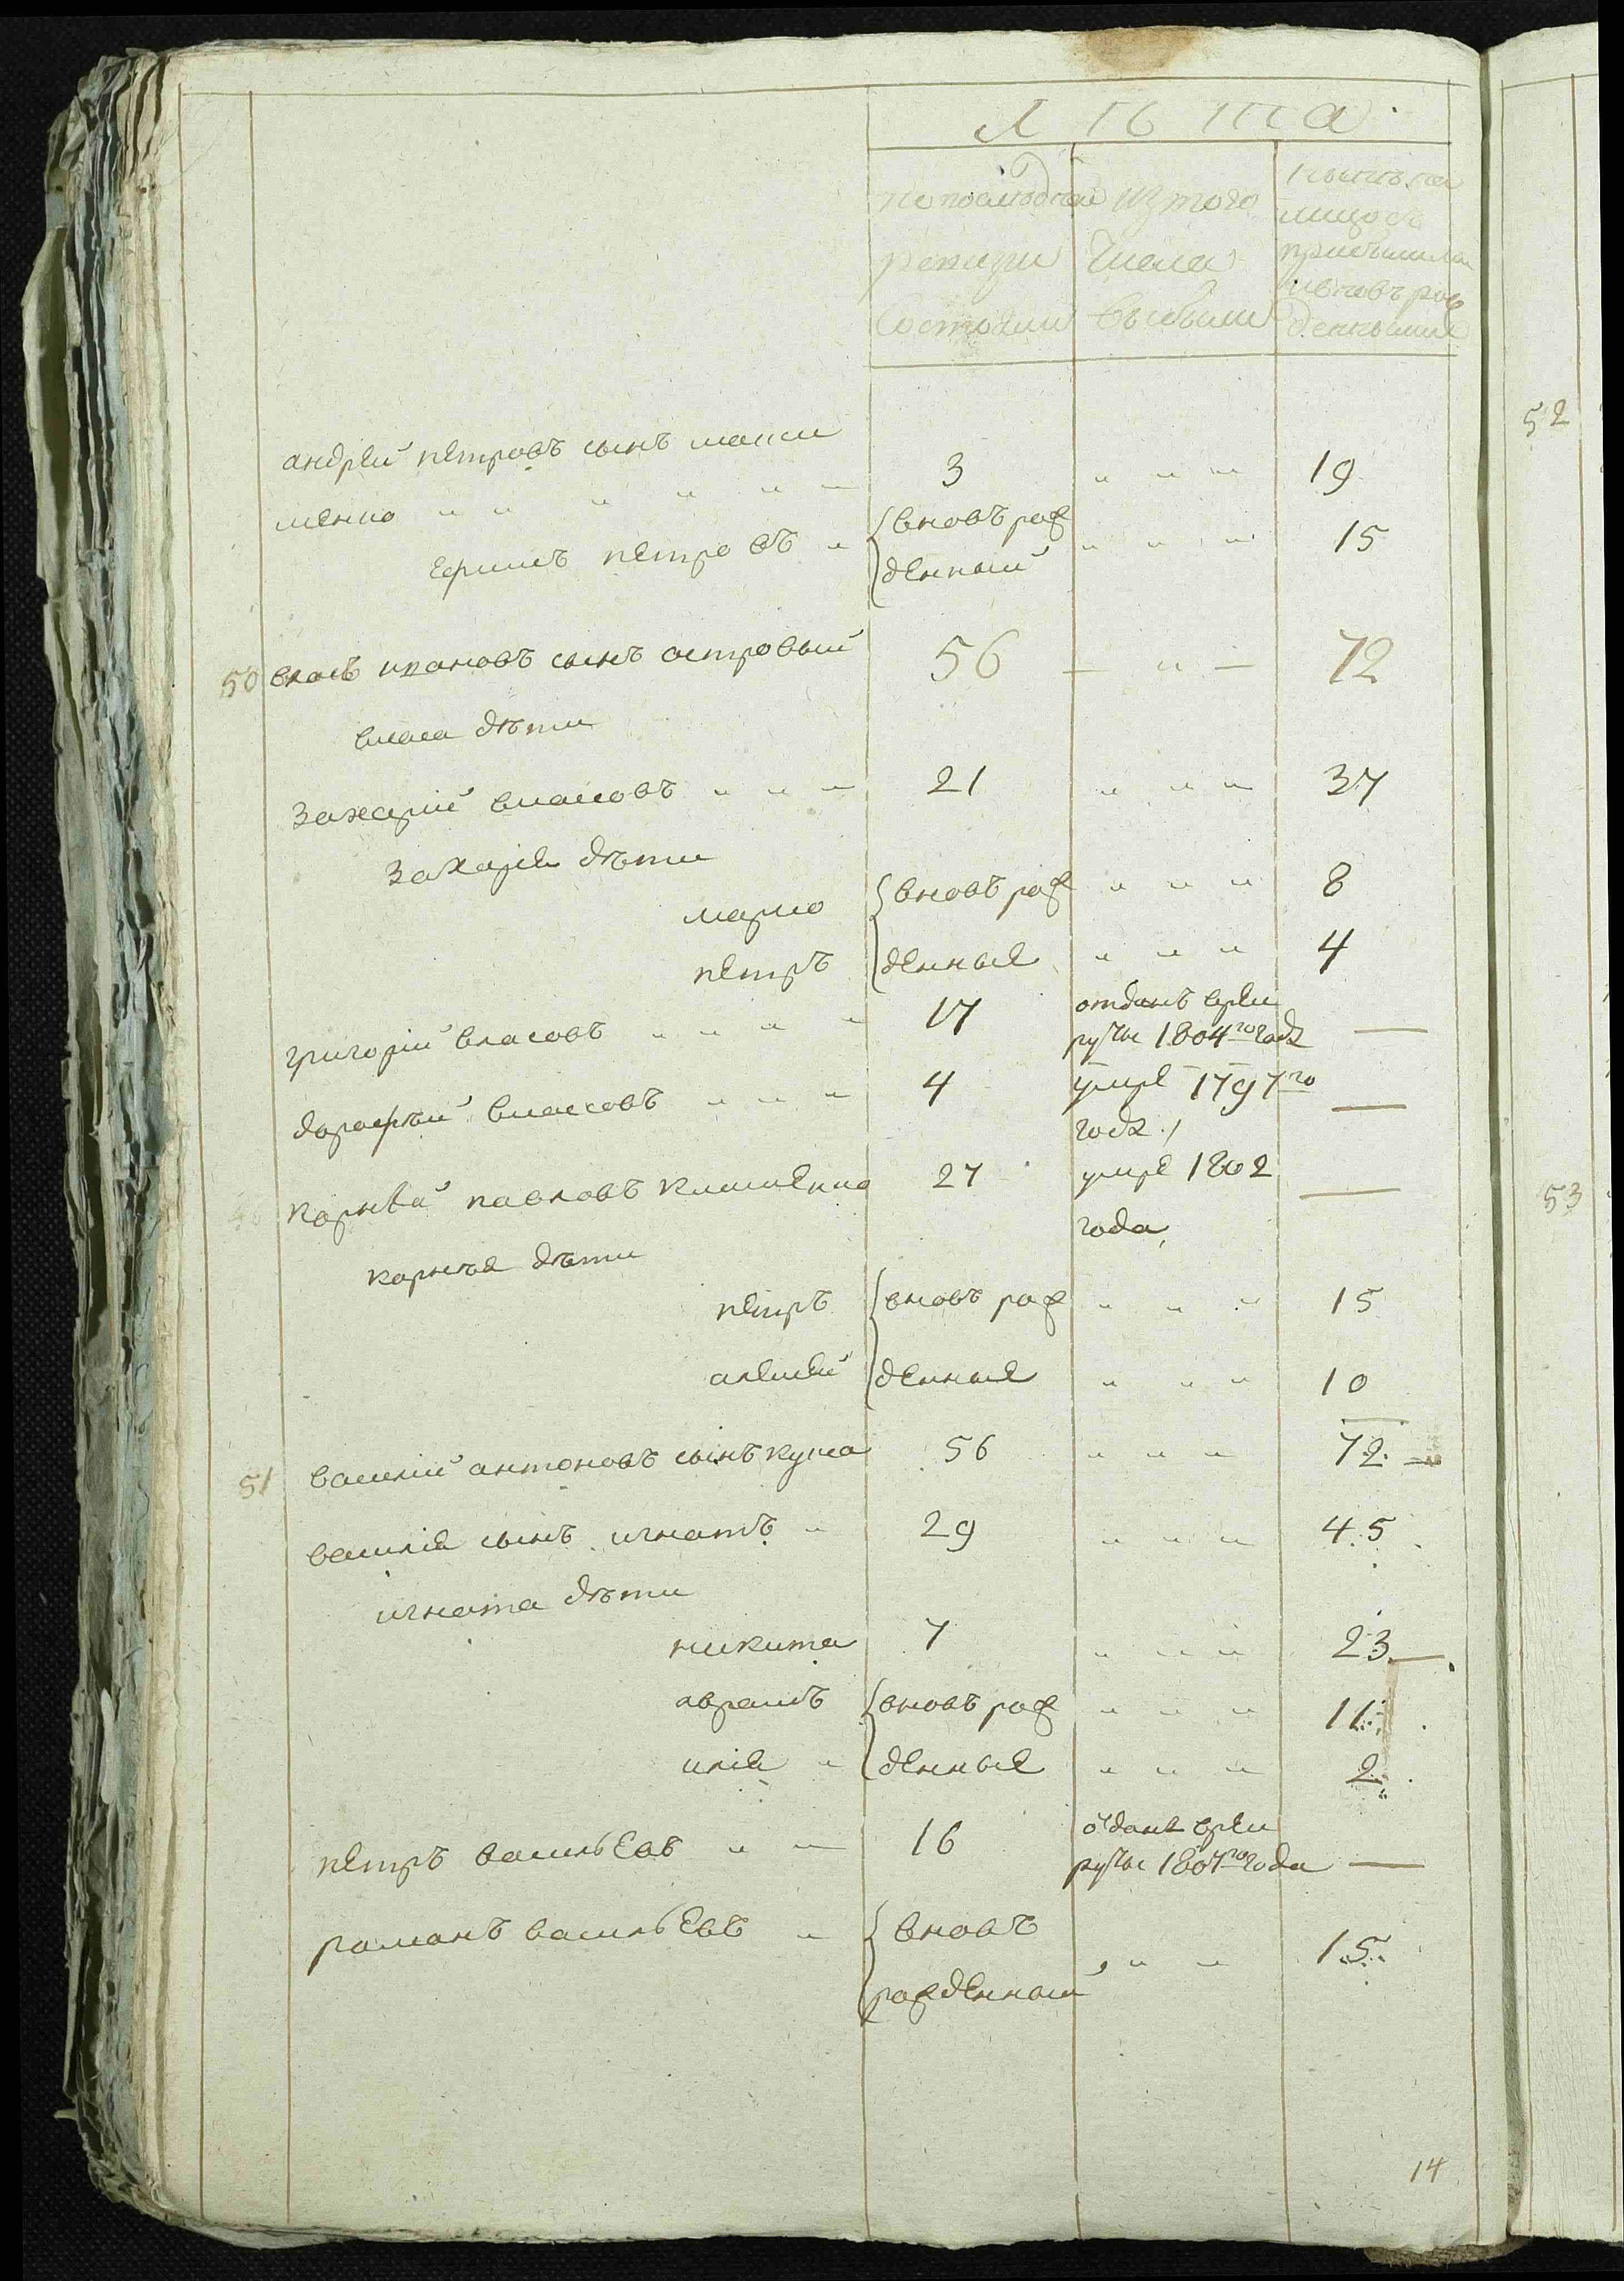 Лѣта
по последней ревизіи состояли
изъ того числа выбыли
нынѣ на лицо съ прибылыми и вновь рожденными
андрей петровъ сынъ макси
менко " " " " " — 3 " " — 19
ефимъ петровъ " вновъ рож
денный " " " 15
50 власъ ивановъ сынъ островый 56 — " — 72
власа дѣти
Захарій власовъ " " — 21 " " — 37
Захарія дѣти
марко вновъ рож " " " 8
петръ денные " " " 4
григорій власовъ " " " " 17 отданъ врек
руты 1804го года —
дорофѣй власовъ " " — 4 умре 1797го
года —
корнѣй павловъ клименко 27 умре 1802
года —
корнѣя дѣти
петръ вновъ рож " " " 15
алексѣй денные " " " 10
51 василій антоновъ сынъ куца 56 " " — 72
василія сынъ игнатъ " 29 " " — 45
игната дѣти
никита 7 " " " 23
аврамъ вновъ рож " " " 11
илія " денные " " — 2
петръ васильевъ " — 16 отданъ врек
руты 1807го года —
романъ васильевъ " вновъ
рожденный " " — 15
14
52
53